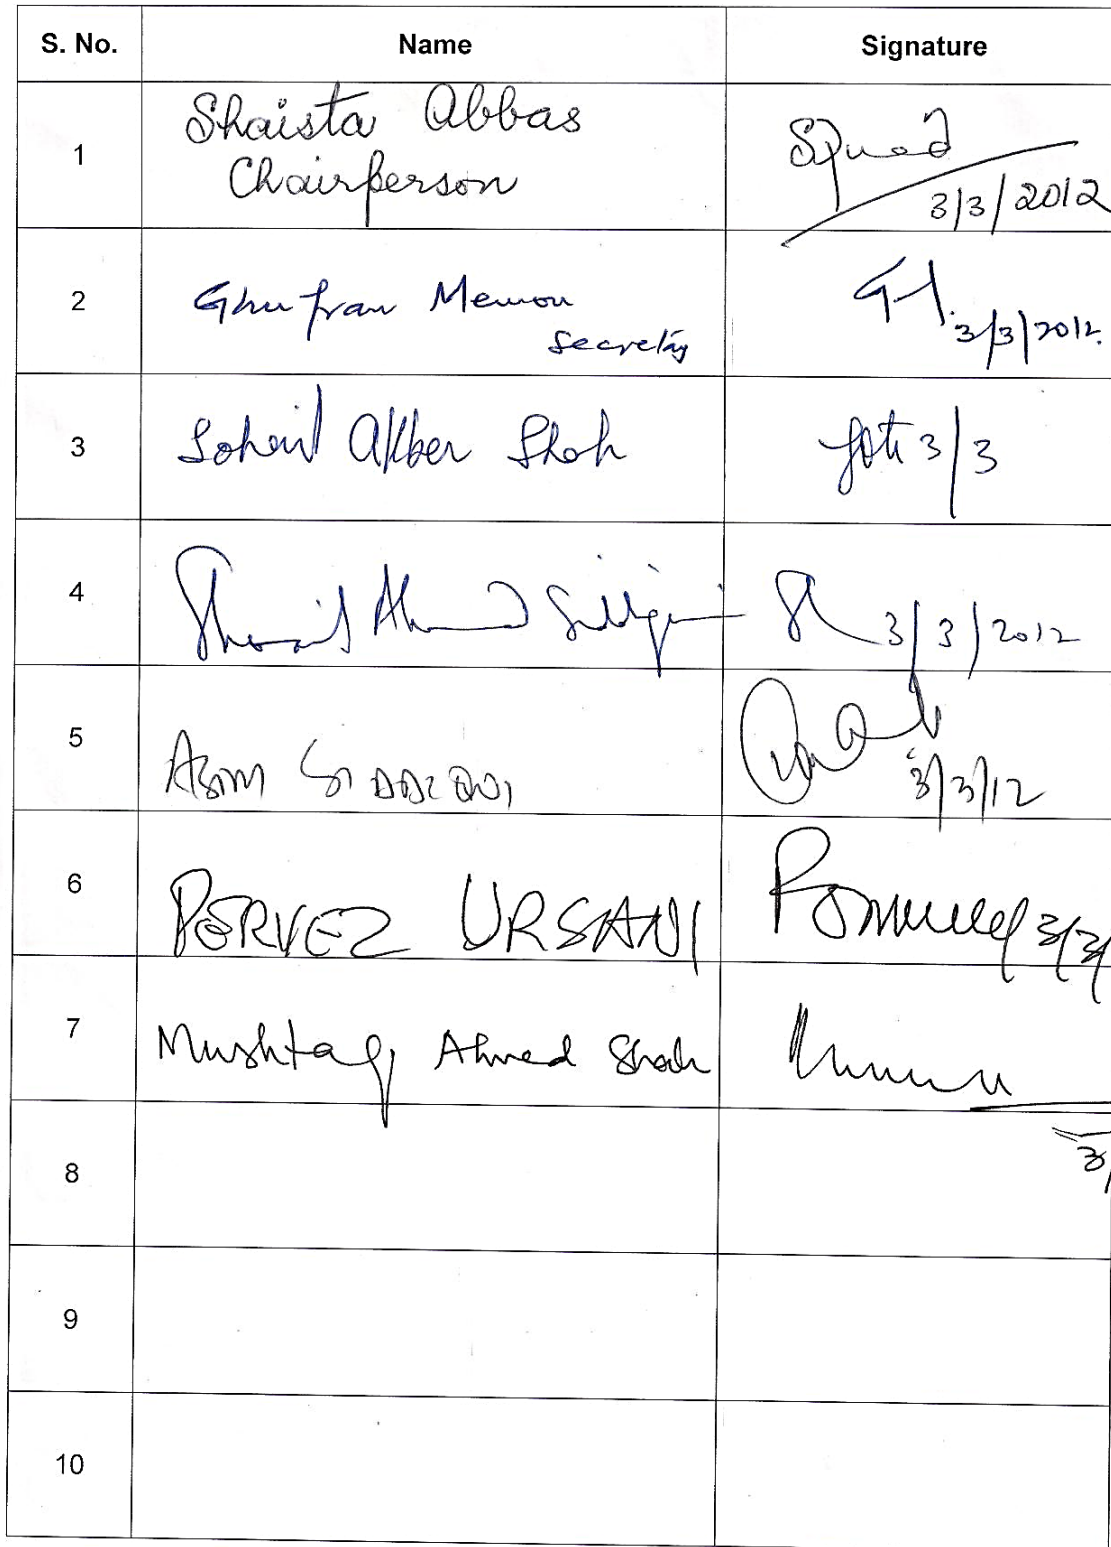 S. No. Name Signature
1 Shaista Abbas
Chairperson
3/3/2012
2 Ghufran Memon
Secretary
3/3/2012
3 Sohail Akber Shah 3/3
4 Ahmed Siddiqui 3/3/2012
5 ASIM SIDDIQUI
3/3/12
6 PERVEZ URSANI 3/3/
7 Mushtaq Ahmed Shah
3/
8
9
10